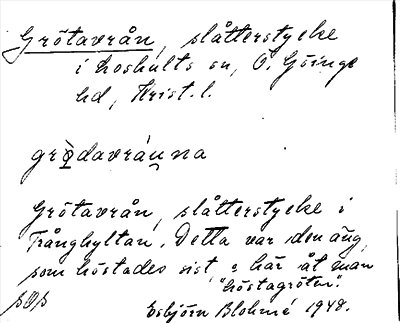 Grötavrån, slåtterstycke
i Loshults sn, Ö. Göinge
hd, Krist. l.
grö̀davráu̯na
Grötavrån, slåtterstycke i
Trånghyltan. Detta var den äng,
som höstades sist, o här åt man
"höstagröten".
Esbjörn Blohmé 1948.